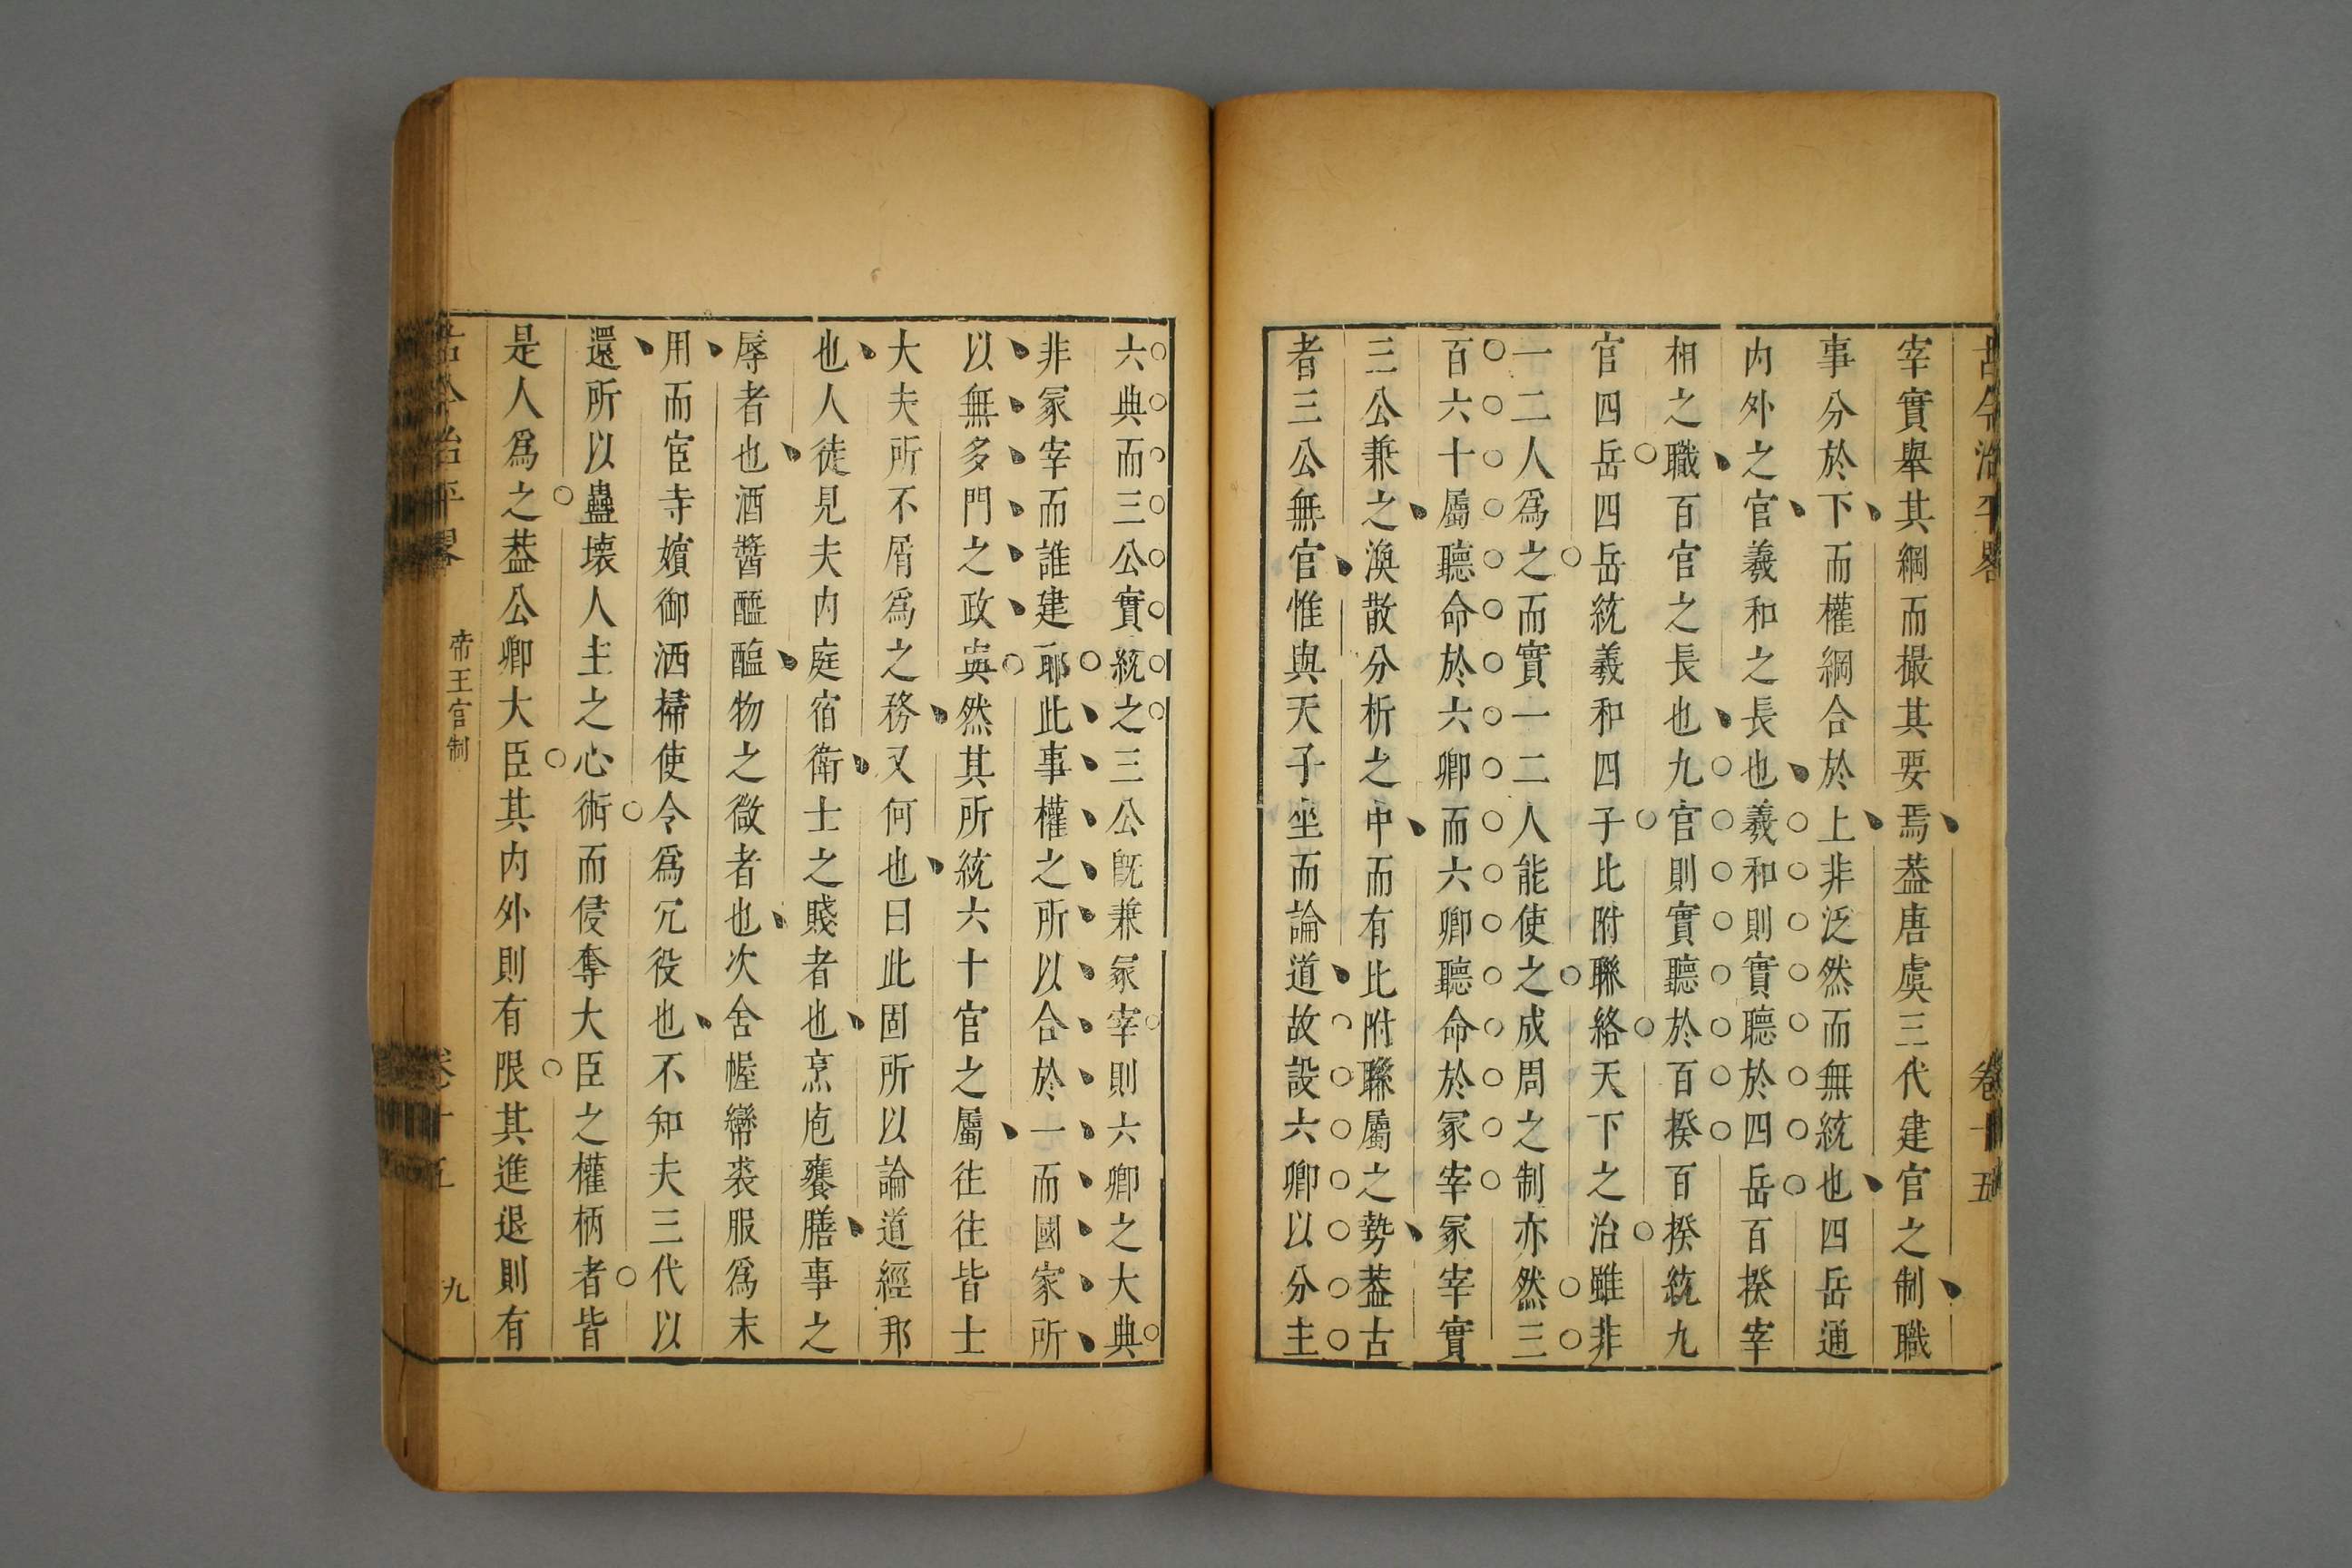 古今治平畧
卷十五
宰實舉其綱而撮其要焉葢唐虞三代建官之制職
事分於下而權綱合於上非泛然而無統也四岳通
内外之官羲和之長也羲和則實聽於四岳百揆宰
相之職百官之長也九官則實聽於百揆百揆統九
官四岳四岳統羲和四子比附聮絡天下之治雖非
一二人爲之而實一二人能使之成周之制亦然三
百六十屬聽命於六卿而六卿聽命於冢宰冢宰實
三公兼之渙散分析之中而有比附聮屬之勢葢古
者三公無官惟與天子坐而論道故設六卿以分主
六典而三公實統之三公旣兼冢宰則六卿之大典
非冢宰而誰建耶此事權之所以合於一而國家所
以無多門之政與然其所統六十官之屬往往皆士
大夫所不屑爲之務又何也曰此固所以論道經邦
也人徒見夫内庭宿衛士之賤者也烹庖饔膳事之
辱者也酒醬醯醢物之微者也次舍幄帟裘服爲末
用而宦寺嬪御洒掃使令爲冗役也不知夫三代以
還所以蠱壊人主之心術而侵奪大臣之權柄者皆
是人爲之葢公卿大臣其内外則有限其進退則有
古今治平畧
帝王官制
卷十五
九